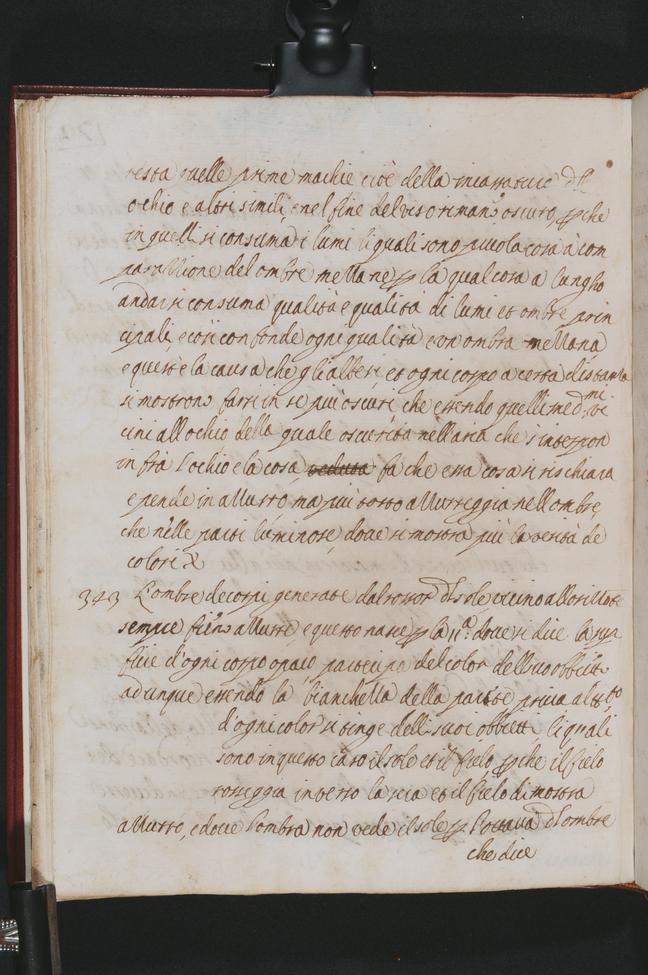 resta quelle prime machie cioè della incassatura d'll
ochio e altri simili, e nel fine del viso rimane oscuro, p che
in quelli si consumā i lumi li quali sono picola cosa à com
parazzione del ombre mezzane p la qual cosa a lungho
andar si consuma qualita e qualità di lumi et ombre prin
cipali, e così confonde ogni qualità e con ombra mezzana
e queste la causa che gli alberi, et ogni corpo a certa distantia
si mostrono farsi in se più oscuri, che essendo quelli med.mi vi
cini all ochio della quale oscurita nell aria che s'interpon
in frà l'ochio e la cosa veduta fa che essa cosa si rischiara
e pende in azzurro ma più tosto azzurreggia nell ombre,
che nelle parti luminose, doue si mostra più la verità de
colori
343 L'ombre de corpi generate dal rossor d'l sole vicino all orizonte
sempre fieno azzurre, e questo nasce p la 11.a doue si dice la sup
ficie d'ogni corpo opaco partecipa del color dell suo obbiett.
adunque essendo la bianchezza della pariete priua al tutto
d'ogni color si tinge dell suoi obbietti li quali
sono in questo caso il sole et il cielo p che il cielo
rosseggia inverso la sera et il cielo dimostra
azzurro, e doue l'ombra non vede il sole p l'ottaua d'l ombre
che dice